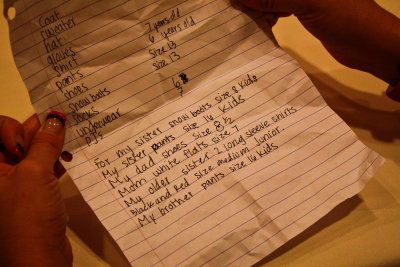 coat
sweater 7 years old
hat 6 years old
gloves size 13
shirt size 13
pants
shoes
snow boots
socks
underwear
PJs
For my sister snow boots size 8 kids
My sister pants size 16 kids
My dad shoes size 8½
Mom white flats size 7
My older sister 2 long sleeve shirts
Black and Red size medium Junior.
My brother pants size 16 kids